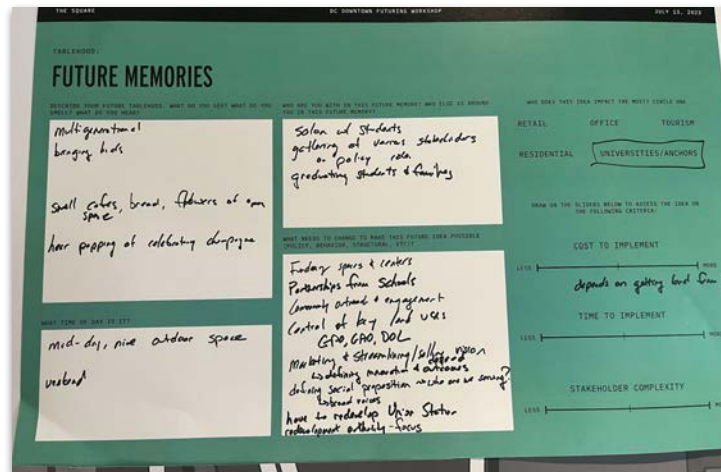 THE SQUARE
DC DOWNTOWN FUTURING WORKSHOP
JULY 13, 2022
TABLEHOOD:
FUTURE MEMORIES
DESCRIBE YOUR FUTURE TABLEHOOD. WHAT DO YOU SEE? WHAT DO YOU
SMELL? WHAT DO YOU HEAR?
multigenerational
bringing kids
smell cofee, bread, flowers of open
space
hear popping of celebrating champagne
WHAT TIME OF DAY IS IT?
mid-day, nice outdoor space
weekend
WHO ARE YOU WITH IN THIS FUTURE MEMORY? WHO ELSE IS AROUND
YOU IN THIS FUTURE MEMORY?
Salon w/ students
gathering of various stakeholders
on policy
graduating students & families
WHAT NEEDS TO CHANGE TO MAKE THIS FUTURE IDEA POSSIBLE
(POLICY, BEHAVIOR, STRUCTURAL, ETC)?
Finding spaces & centers
Partnerships from Schools
Community outreach & engagement
Control of key land uses
GPO, GAO, DOL
Marketing & Streamlining/selling vision
defining innovation & outcomes
defining social proposition who are we serving?
broad voices
have to redevelop Union Station
redevelopment authority - focus
WHO DOES THIS IDEA IMPACT THE MOST? CIRCLE ONE
RETAIL OFFICE TOURISM
RESIDENTIAL UNIVERSITIES/ANCHORS
DRAW ON THE SLIDERS BELOW TO ASSESS THE IDEA ON
THE FOLLOWING CRITERIA:
COST TO IMPLEMENT
LESS MORE
depends on getting land from
TIME TO IMPLEMENT
LESS MORE
STAKEHOLDER COMPLEXITY
LESS